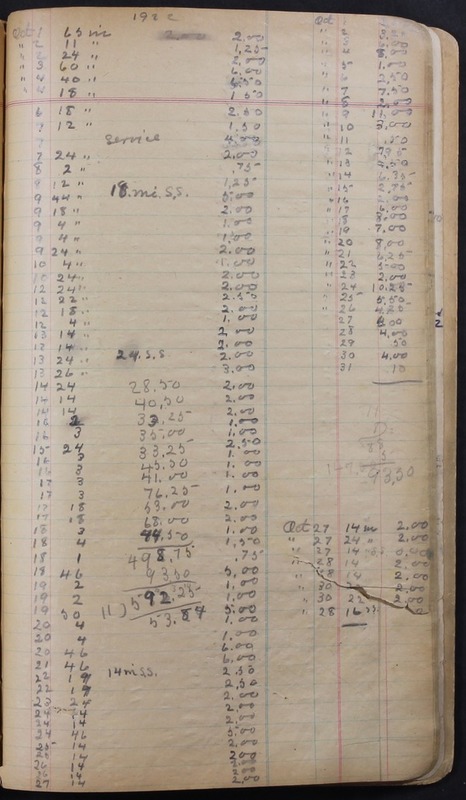 1922
Oct 1 65 mi 2.00 2.00
" 2 11 " 1,25
" 2 24 " 2.00
" 3 60 " 6.00
" 4 40 "
" 4 18 " 1.50
6 18 " 2.50
7 12 " 1.50
service 4.00
7 24 " 2.00
8 2 " .75
9 12 " 1,25
9 44 " 18.mi.S.S. 5.00
9 18 " 2.00
9 4 " 1.00
9 4 " 1.00
9 24 " 2.00
10 4 " 1.00
10 24 " 2.00
12 24 " 2.00
12 22 " 2.50
12 18 " 2.00
12 4 " 1.00
13 14 " 2.00
12 14 " 2.00
13 24 " 24.S.S 2.00
13 26 " 3.00
14 24 28.50 2.00
14 14 40,50 2.00
14 14 33.25 2.00
16 2 35.00 1.00
16 3 33,25 1.00
15 24 45.50 2.50
16 3 41.00 1.00
16 3 76.25 1.00
17 3 53.00 1.00
17 3 68.00 1.00
17 18 44,50 2.00
17 18 498,75 2.00
18 3 93,50 1.00
18 4 11)592.25 1.50
18 1 53.84 .75
18 46 5.00
19 2 1.00
19 2 1.00
19 50 5.00
20 4 1.00
20 4 1.00
20 46 6.00
21 46 6.00
22 19 14 mi S.S. 2.50
22 19 2,50
23 24 2.00
24 14 2.00
24 14 2.00
24 46 5.00
25 14 2.00
25 14 2.00
26 14 2.00
26 14 2.00
27 14 2.00
Oct
" 4 8.00
" 5 1.00
" 6 2,50
" 7 7.50
" 8 2.00
" 9 11.00
" 10 3.00
" 11 .50
" 13 4.50
" 14 6.35
" 15 2.75
" 16 2.00
" 17 6.00
" 18 8.00
" 19 7.00
" 20 8,00
" 21 6,25
" 22 5.00
" 23 2.00
" 24 10.25
" 25 5.50
" 26 4.20
" 27 6.00
" 28 4.00
" 29 50
" 30 4.00
31 .10
93,50
Oct 27 14 m 2.00
" 27 24 " 2.00
" 27 14
" 28 14 2.00
" 28 14 2.00
" 30 2.00
" 30 22 2.00
" 28 16